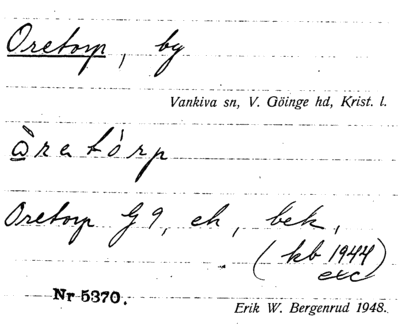 Oretorp, by
Vankiva sn, V. Göinge hd, Krist. l.
òretórp
Oretorp G9, eh, bek,
(kb 1944)
exc
Nr 5370.
Erik W. Bergenrud 1948.